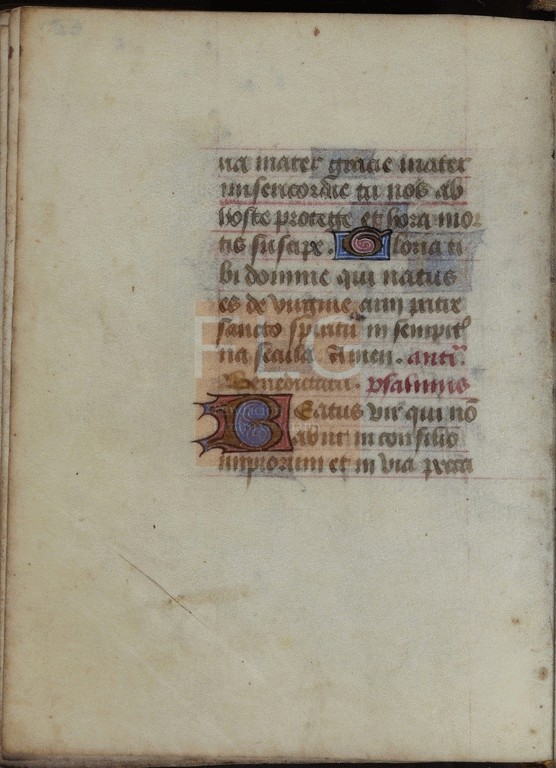 ria mater gracie mater
misericordie tu nos ab
hoste protege et hora mor
tis suscipe. Gloria ti
bi domine qui natus
es de virgine cum patre
sancto spiritu in sempit͛
na secula Amen. anti͛.
Benedictatu. psalmus
Beatus vir qui nō
abiit in consilio
impiorum et in via pecca
FLG